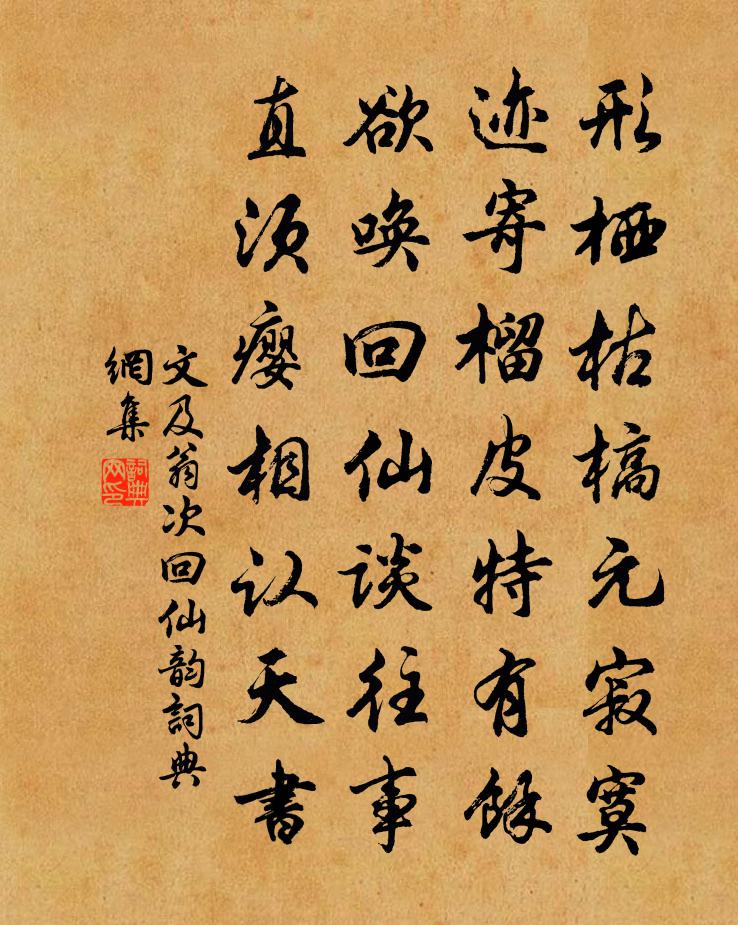 形栖枯槁元寂寞
迹寄榴皮特有馀
欲唤回仙谈往事
直须瘿相认天書
文及翁次回仙韵詞典
網集
詞典
网印